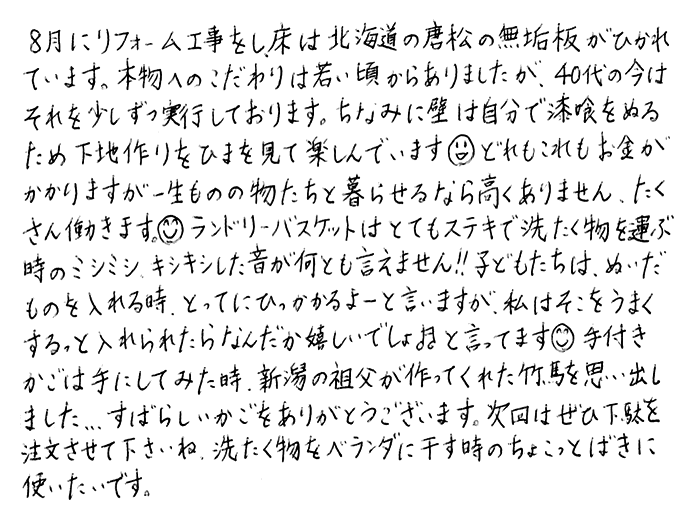 8月にリフォーム工事をし、床は北海道の唐松の無垢板がひかれ
ています。本物へのこだわりは若い頃からありましたが、40代の今は
それを少しずつ実行しております。ちなみに壁は自分で漆喰をぬる
ため下地作りをひまを見て楽しんでいます☺どれもこれもお金が
かかりますが一生ものの物たちと暮らせるなら高くありません、たく
さん働きます。☺ランドリーバスケットはとてもステキで洗たく物を運ぶ
時のミシミシ、キシキシした音が何とも言えません!!子どもたちは、ぬいだ
ものを入れる時、とってにひっかかるよーと言いますが、私はそこをうまく
するっと入れられたらなんだか嬉しいでしょ、まぁと言ってます☺手付き
かごは手にしてみた時、新潟の祖父が作ってくれた竹馬を思い出し
ました...すばらしいかごをありがとうございます。次回はぜひ下駄を
注文させて下さいね、洗たく物をベランダに干す時のちょこっとばきに
使いたいです。